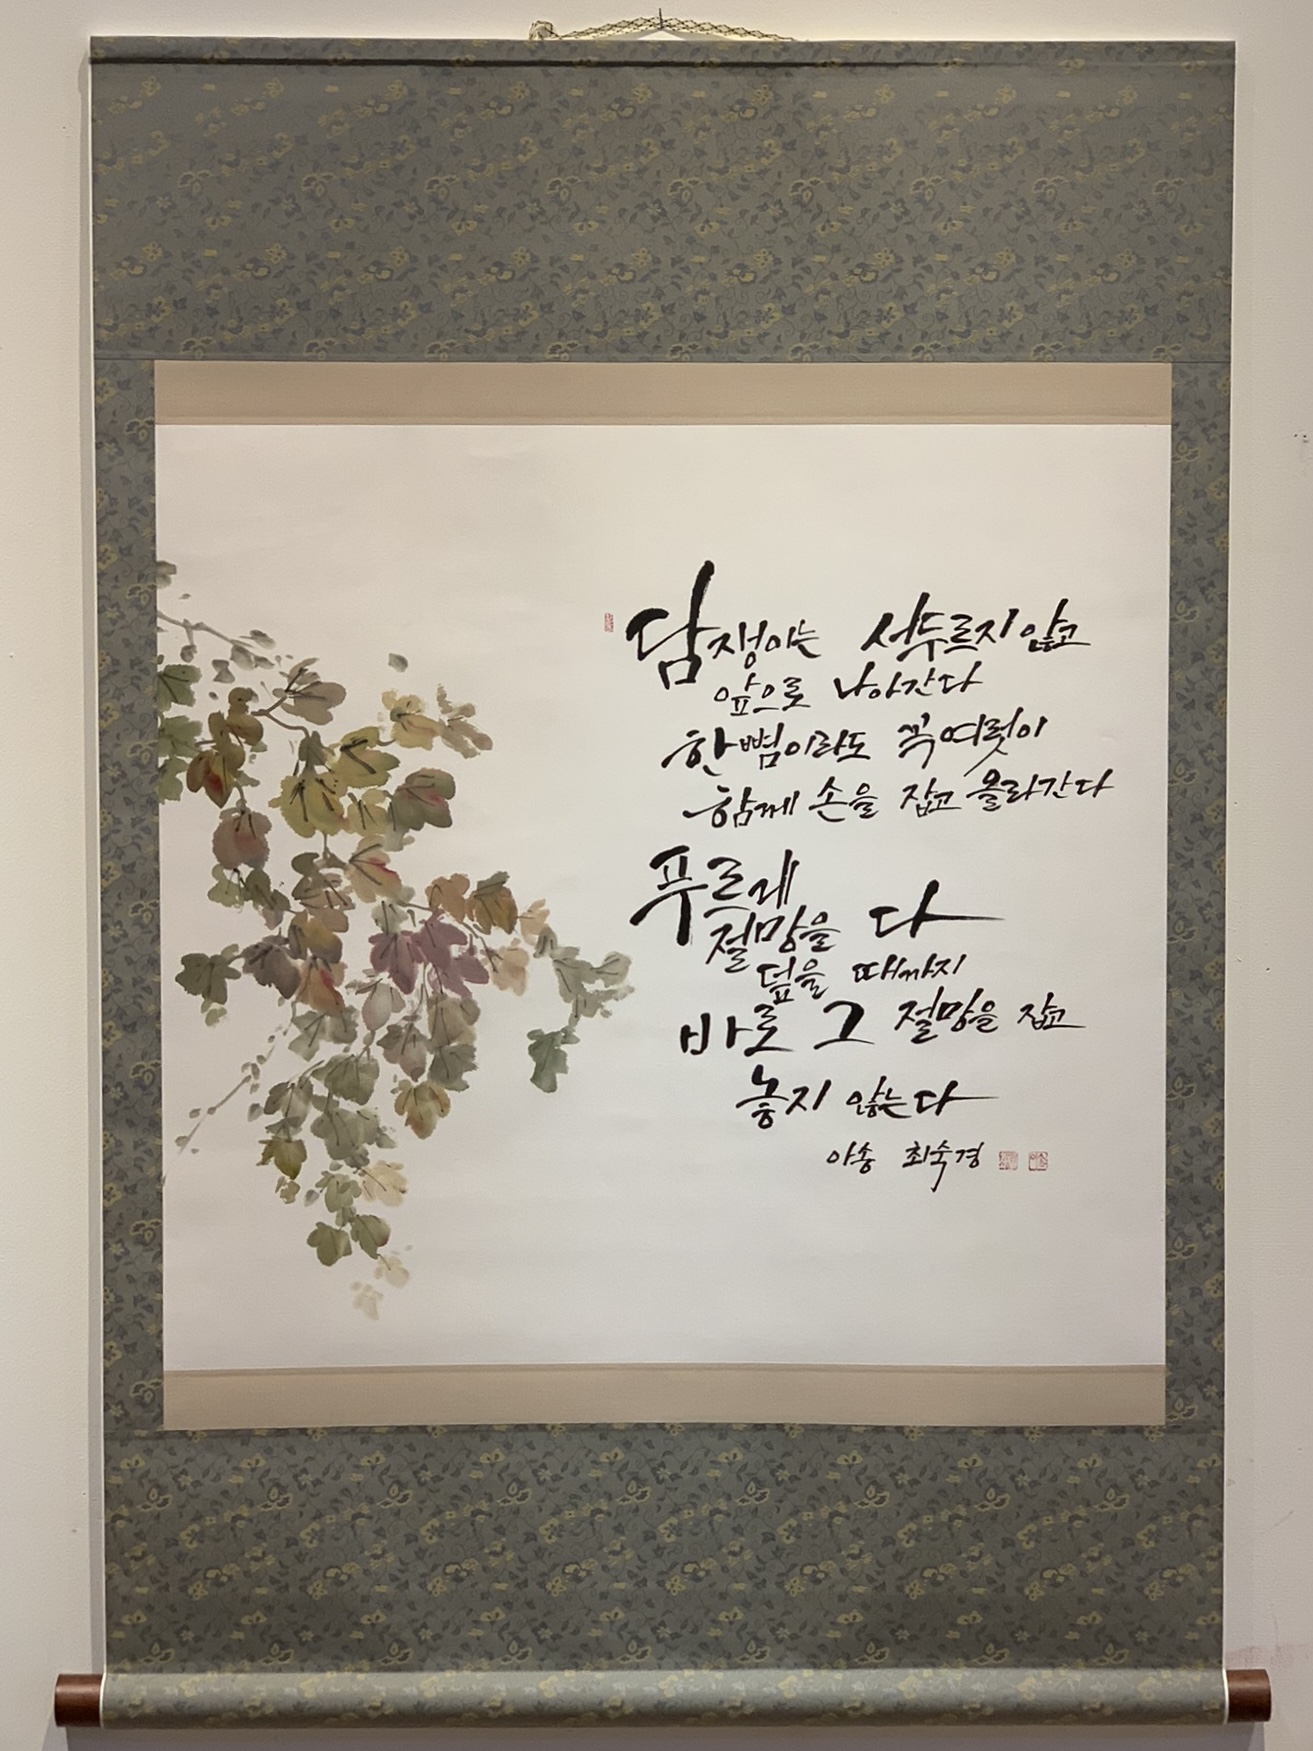 담쟁이는 서두르지 않고
앞으로 나아간다
한뼘이라도 꼭 여럿이
함께 손을 잡고 올라간다
푸르게
절망을 다
덮을 때까지
바로 그 절망을 잡고
놓지 않는다
야송 최숙경